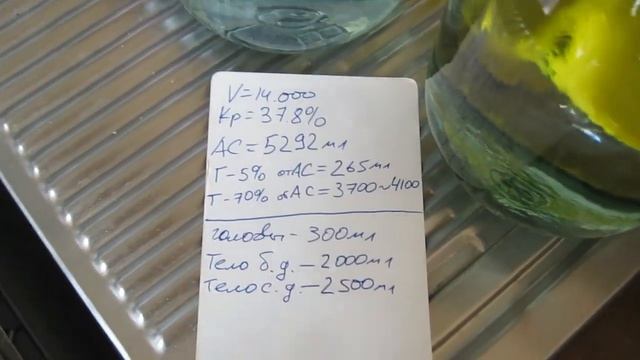 V=14.000
Кр=37.8%
АС=5292мл
Г-5% от АС=265мл
Т-70% от АС=3700-4100
головы-300мл
Тело б.д.-2000мл
Тело с.д.-2500мл